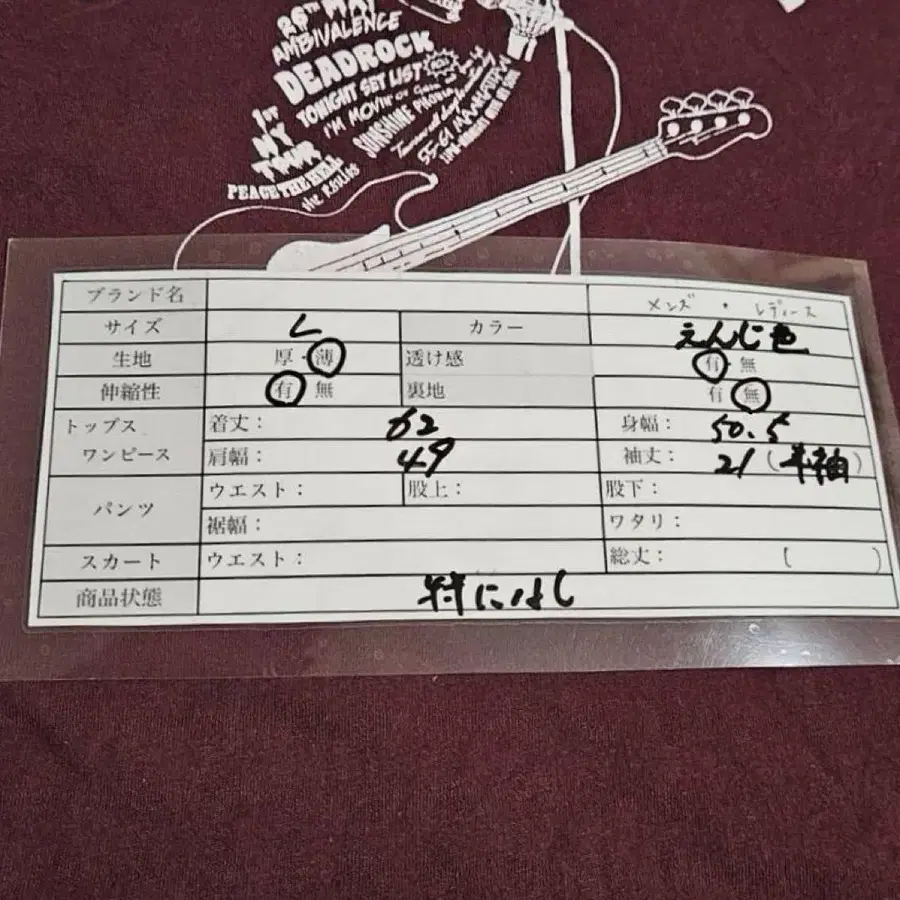 29TH MAY
AMBIVALENCE
DEADROCK
TONIGHT SET LIST
I'M MOVIN' ON
SUNSHINE
55-61
1ST
NY
TOUR
PEACE THE HELL
the ROLLING
ブランド名
メンズ ・ レディース
サイズ L カラー えんじ色
生地 厚・薄 透け感 有・無
伸縮性 有 無 裏地 有 無
トップス ワンピース 着丈： 62 身幅： 50.5
肩幅： 49 袖丈： 21 (半袖)
パンツ ウエスト： 股上： 股下：
裾幅： ワタリ：
スカート ウエスト： 総丈： ( )
商品状態 特になし